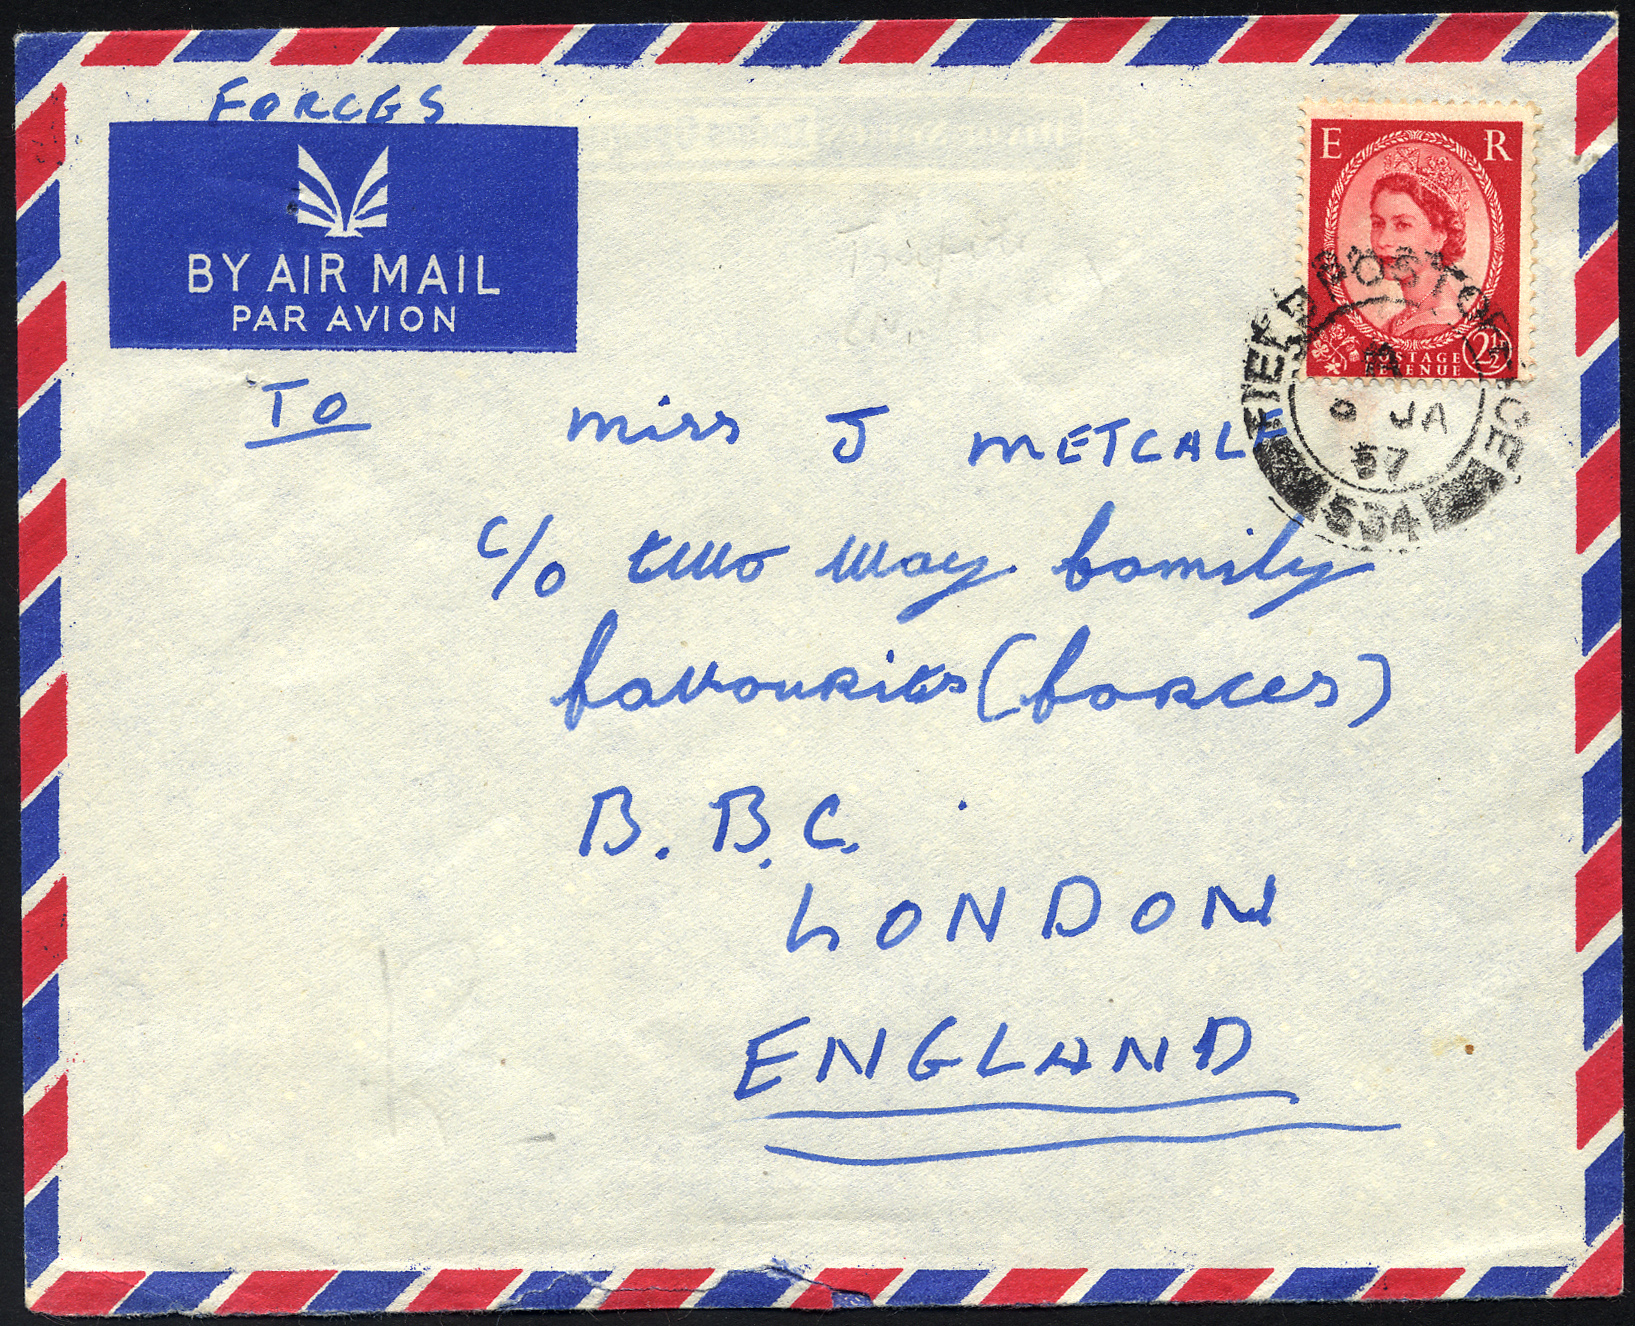 FORCES
BY AIR MAIL
PAR AVION
E R
POSTAGE 2½
REVENUE
FIELD POST OFFICE
A
9 JA
57
534
To Miss J METCALF
c/o two way family
favourites (forces)
B.B.C.
LONDON
ENGLAND